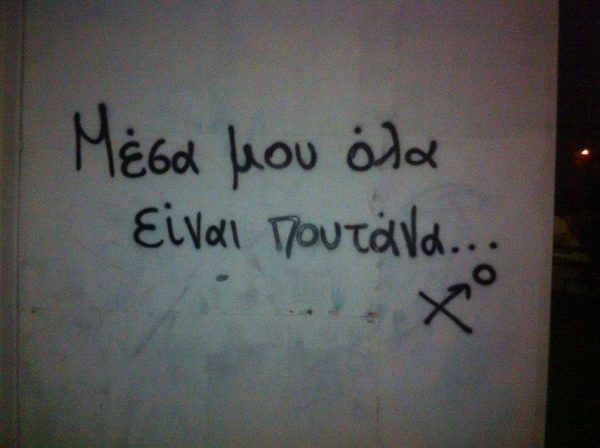 Μέσα μου όλα
είναι πουτάνα...